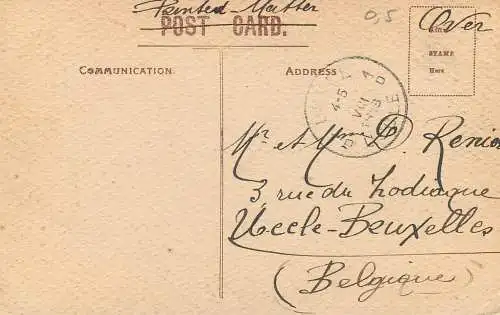 Printed Matter
POST CARD.
0,5
Over
AFFIX
STAMP
HERE
COMMUNICATION.
ADDRESS
4-5
VIII
Mr et Mme D. Renio
3 rue du Zodiaque
Uccle-Bruxelles
(Belgique)